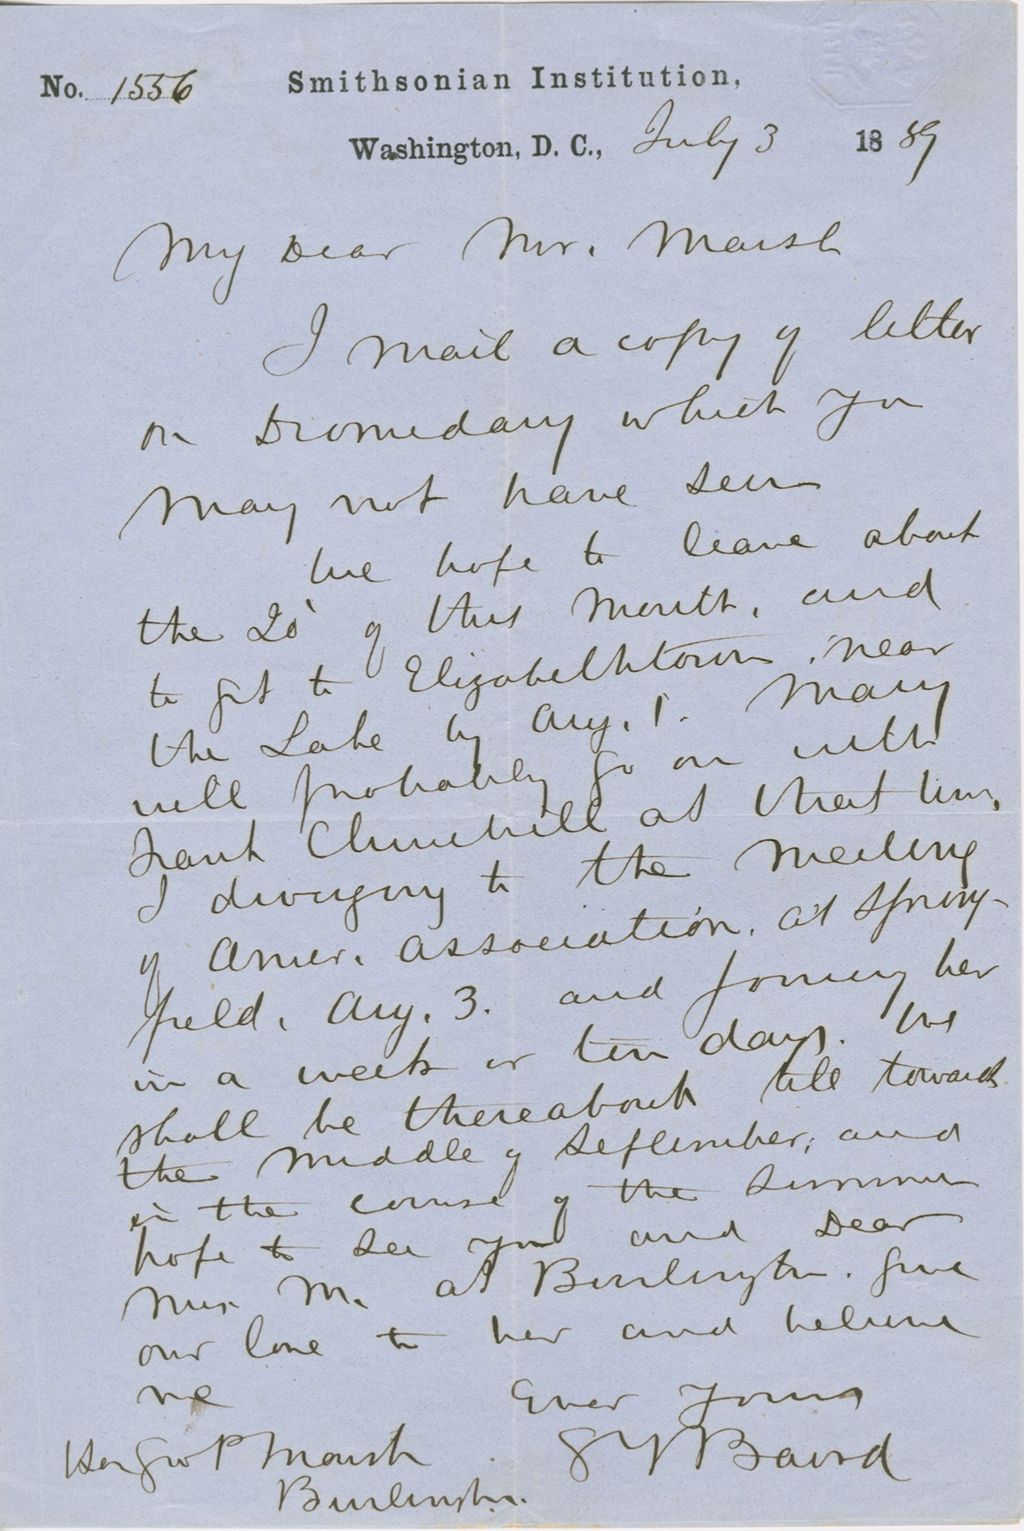 No. 1556 Smithsonian Institution,
Washington, D. C., July 3 1859
My Dear Mr. Marsh
I mail a copy of letter
on Dromedary which you
may not have seen
We hope to leave about
the 20 of this month, and
to get to Elizabethtown near
the Lake by Aug. 1. Mary
will probably go on with
Frank Churchill at that time,
I diverging to the meeting
of Amer. Association, at Spring-
field, Aug. 3. and joining her
in a week or ten days. We
shall be thereabouts till towards
the middle of September; and
in the course of the summer
hope to see you and Dear
Mrs. M. at Burlington. Give
our love to her and believe
me Ever Yours
Hon Geo P Marsh S F Baird
Burlington.